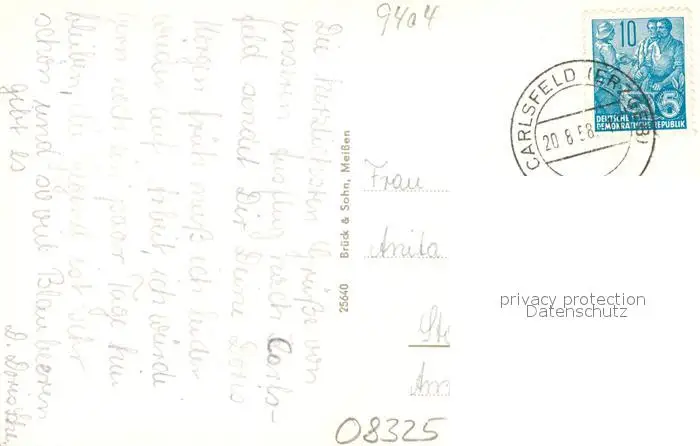 94a4
10
5
DEUTSCHE
DEMOKRATISCHE REPUBLIK
CARLSFELD (ERZGEB)
20.8.58.
Die herzlichsten Grüße von
unserem Ausflug nach Carls-
feld sendet Dir Deine Doris
Morgen früh muß ich leider
wieder auf Arbeit, ich würde
gern noch ein paar Tage hier
bleiben, die Gegend ist sehr
schön und so viel Blaubeeren
gibt es
D. Doristhe
25640 Brück & Sohn, Meißen
Frau
Anita
privacy protection
Datenschutz
08325